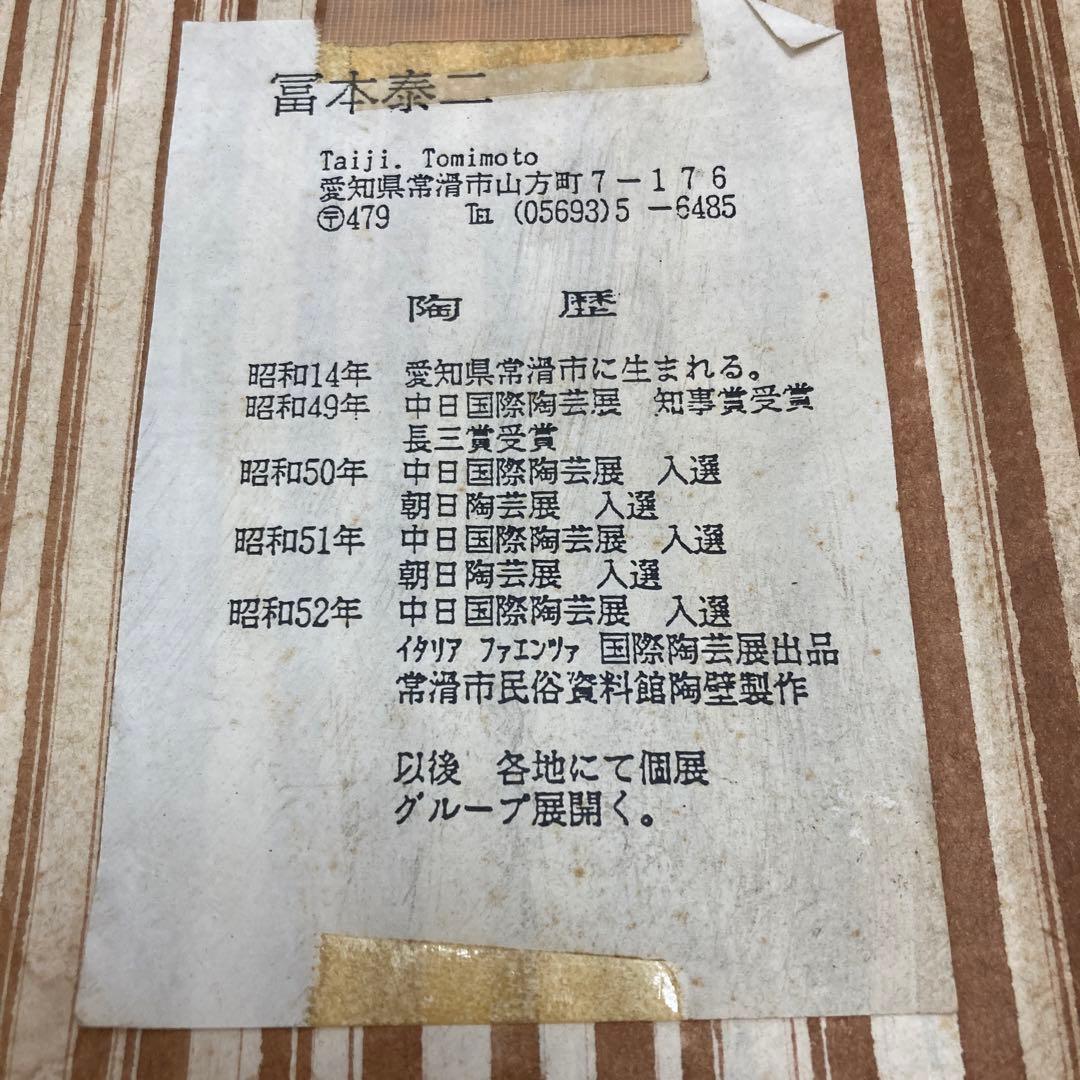 冨本泰二
Taiji. Tomimoto
愛知県常滑市山方町7－176
〶479 ℡(05693)5－6485
陶 歴
昭和14年 愛知県常滑市に生まれる。
昭和49年 中日国際陶芸展 知事賞受賞
長三賞受賞
昭和50年 中日国際陶芸展 入選
朝日陶芸展 入選
昭和51年 中日国際陶芸展 入選
朝日陶芸展 入選
昭和52年 中日国際陶芸展 入選
イタリア ファエンツァ 国際陶芸展出品
常滑市民俗資料館陶壁製作
以後 各地にて個展
グループ展開く。